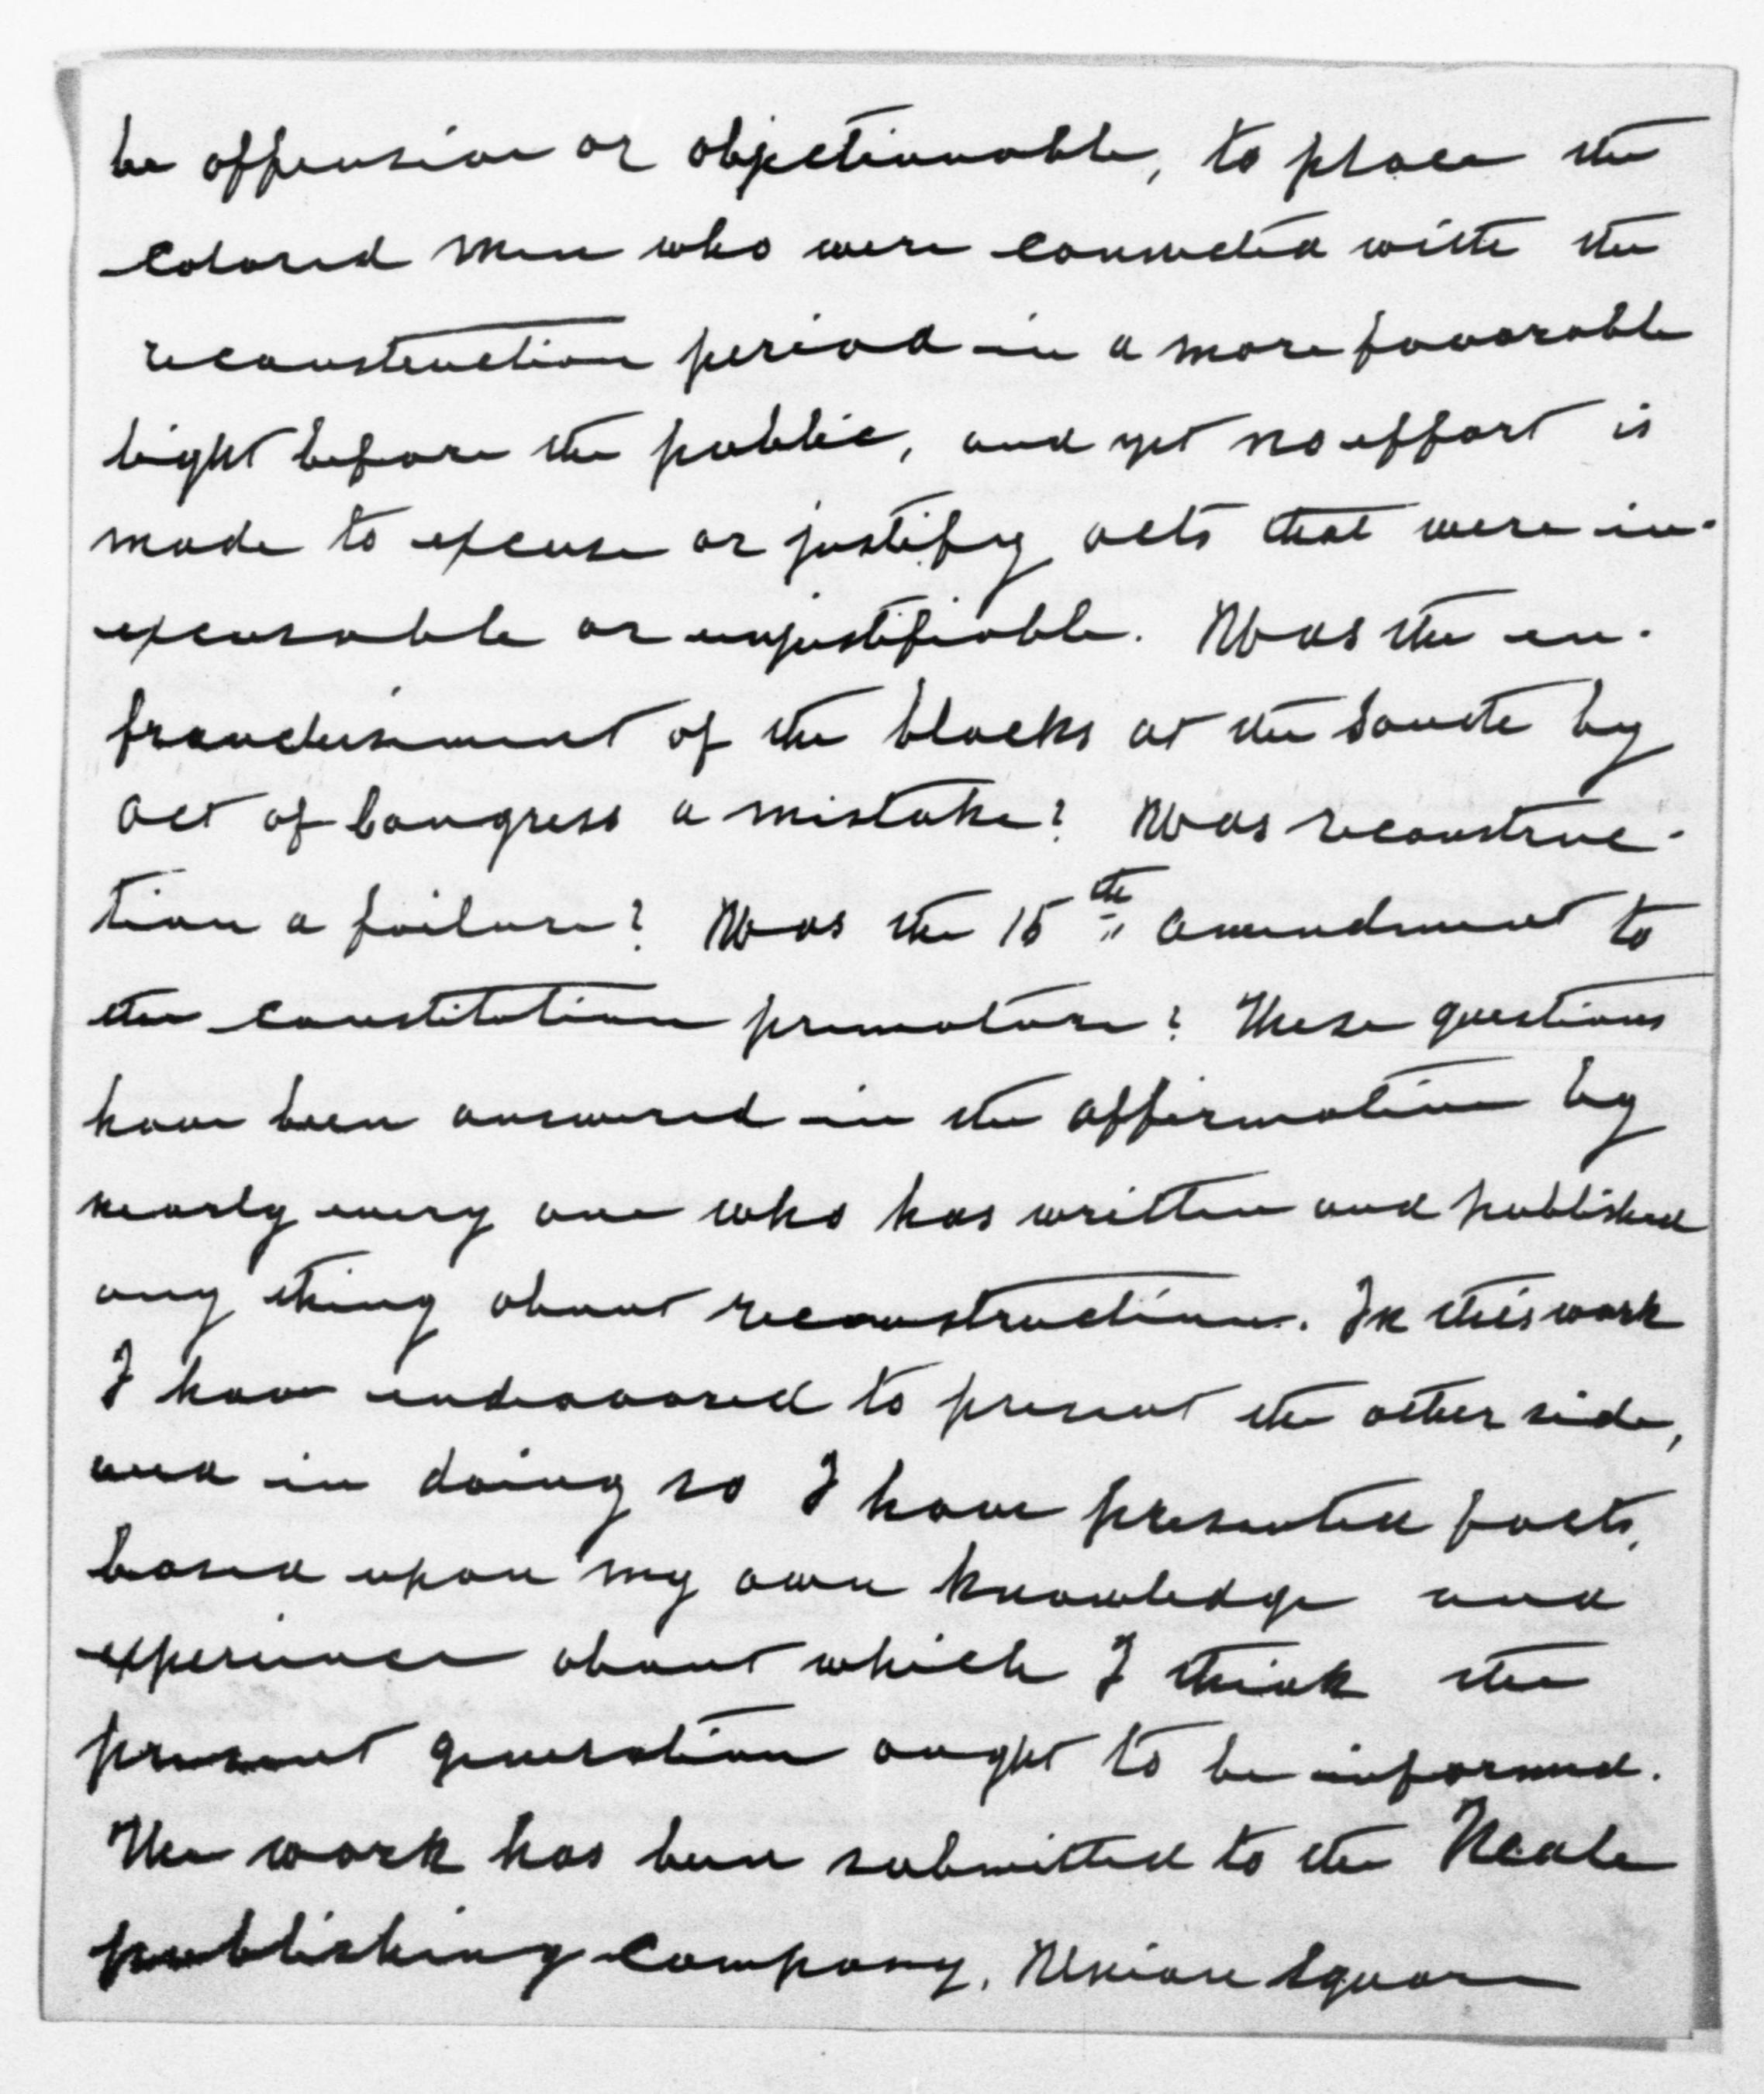 be offensive or objectionable, to place the
colored men who were connected with the
reconstruction period in a more favorable
light before the public, and yet no effort is
made to excuse or justify acts that were in-
excusable or unjustifiable. Was the en-
franchisement of the blacks at the South by
act of Congress a mistake? Was reconstruc-
tion a failure? Was the 15th amendment to
the constitution premature? These questions
have been answered in the affirmative by
nearly every one who has written and published
any thing about reconstruction. In this work
I have endeavored to present the other side,
and in doing so I have presented facts,
based upon my own knowledge and
experience about which I think the
present generation ought to be informed.
The work has been submitted to the Neale
publishing company, Union Square